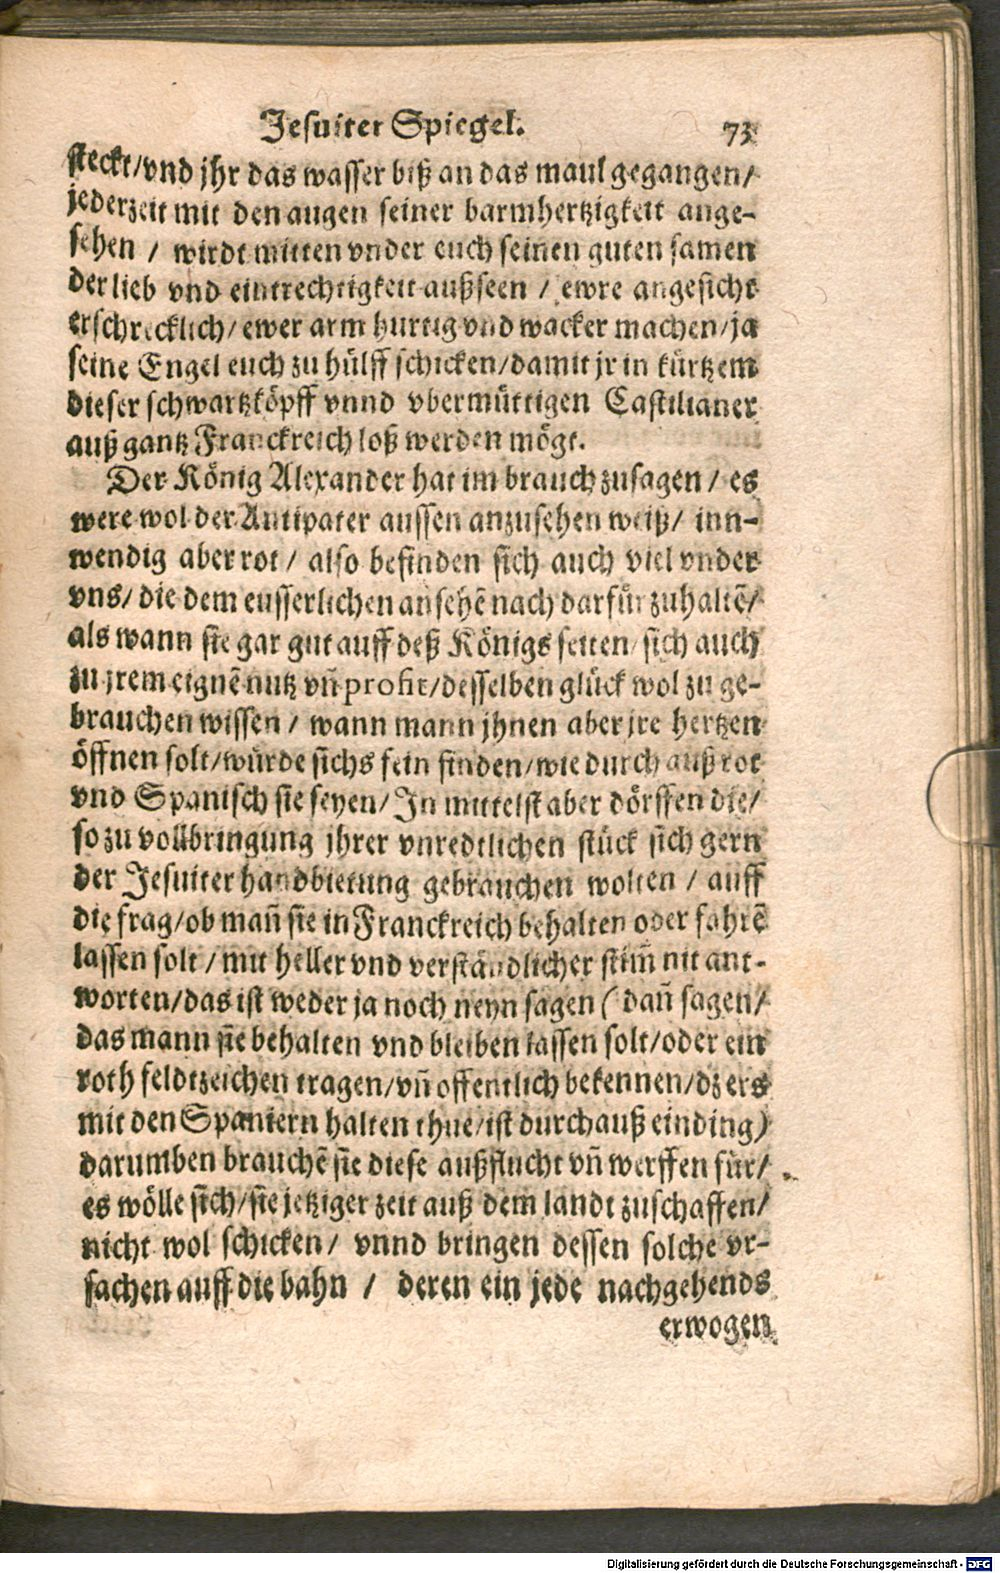 Jesuiter Spiegel. 73
steckt/vnd jhr das wasser biß an das maul gegangen/
jederzeit mit den augen seiner barmhertzigkeit ange-
sehen / wirdt mitten vnder euch seinen guten samen
der lieb vnd eintrechtigkeit außseen / ewre angesicht
erschrecklich/ ewer arm hurtig vnd wacker machen/ja
seine Engel euch zu hülff schicken/damit jr in kürtzem
dieser schwartzköpff vnnd vbermüttigen Castilianer
auß gantz Franckreich loß werden mögt.
Der König Alexander hat im brauch zusagen / es
were wol der Antipater aussen anzusehen weiß/ inn-
wendig aber rot / also befinden sich auch viel vnder
vns/ die dem eusserlichen ansehẽ nach darfür zuhaltẽ/
als wann sie gar gut auff deß Königs seiten/ sich auch
zu jrem eignẽ nutz vñ profit/desselben glück wol zu ge-
brauchen wissen / wann mann jhnen aber jre hertzen
öffnen solt/würde sichs fein finden/wie durch auß rot
vnd Spanisch sie seyen/ In mittelst aber dörffen die/
so zu vollbringung jhrer vnredtlichen stück sich gern
der Jesuiter handbietung gebrauchen wolten / auff
die frag/ob mañ sie in Franckreich behalten oder fahrẽ
lassen solt / mit heller vnd verständlicher stim̃ nit ant-
worten/das ist weder ja noch neyn sagen ( dañ sagen/
das mann sie behalten vnd bleiben lassen solt/oder ein
roth feldtzeichen tragen/vñ offentlich bekennen/dz ers
mit den Spaniern halten thue/ist durchauß ein ding)
darumben brauchẽ sie diese außflucht vñ werffen für/
es wölle sich/sie jetziger zeit auß dem landt zuschaffen/
nicht wol schicken/ vnnd bringen dessen solche vr-
sachen auff die bahn / deren ein jede nachgehends
erwogen
Digitalisierung gefördert durch die Deutsche Forschungsgemeinschaft - DFG